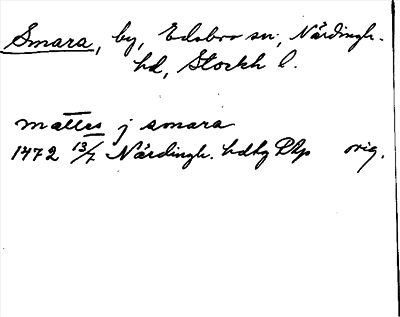 Smara, by, Edsbro sn, Närdingh.
hd, Stockh l.
mattes j smara
1472 13/7 Närdingh. hdtg DAp orig.